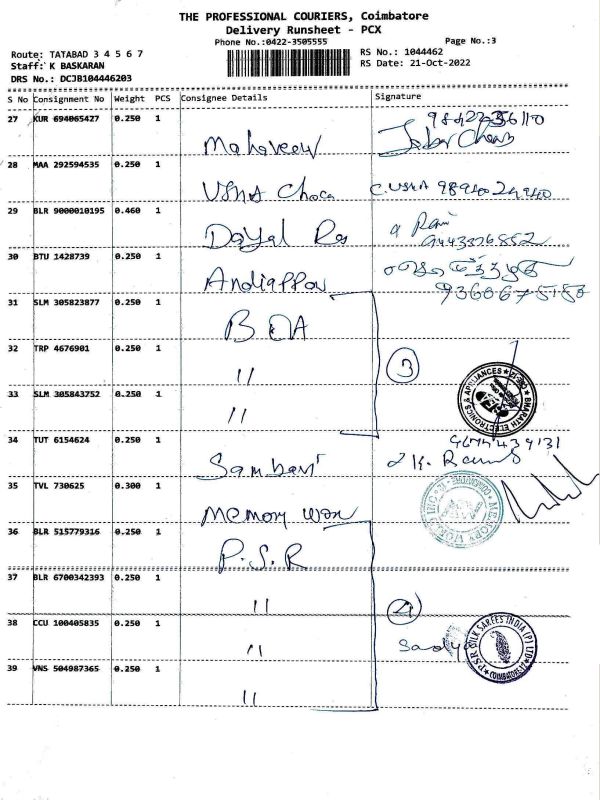 THE PROFESSIONAL COURIERS, Coimbatore
Delivery Runsheet - PCX
Phone No.:0422-3505555
Page No.:3
Route: TATABAD 3 4 5 6 7
RS No.: 1044462
Staff: K BASKARAN
RS Date: 21-Oct-2022
DRS No.: DCJB104446203
S No Consignment No Weight PCS Consignee Details Signature
27 KUR 694065427 0.250 1
28 MAA 292594535 0.250 1
29 BLR 9000010195 0.460 1 Dayal
30 BTU 1428739 0.250 1 Andiappan
31 SLM 305823877 0.250 1 BOA
32 TRP 4676901 0.250 1 " 3
33 SLM 305843752 0.250 1 "
BHARATH ELECTRONICS & APPLIANCES ★ CBE-12 ★
34 TUT 6154624 0.250 1 K.
35 TVL 730625 0.300 1 Memory
MEMORY COIMBATORE-12
36 BLR 515779316 0.250 1 P.S.R
37 BLR 6700342393 0.250 1 " 4
38 CCU 100405835 0.250 1 "
PSR SILK SAREES INDIA (P) LTD COIMBATORE
39 VNS 504987365 0.250 1 "